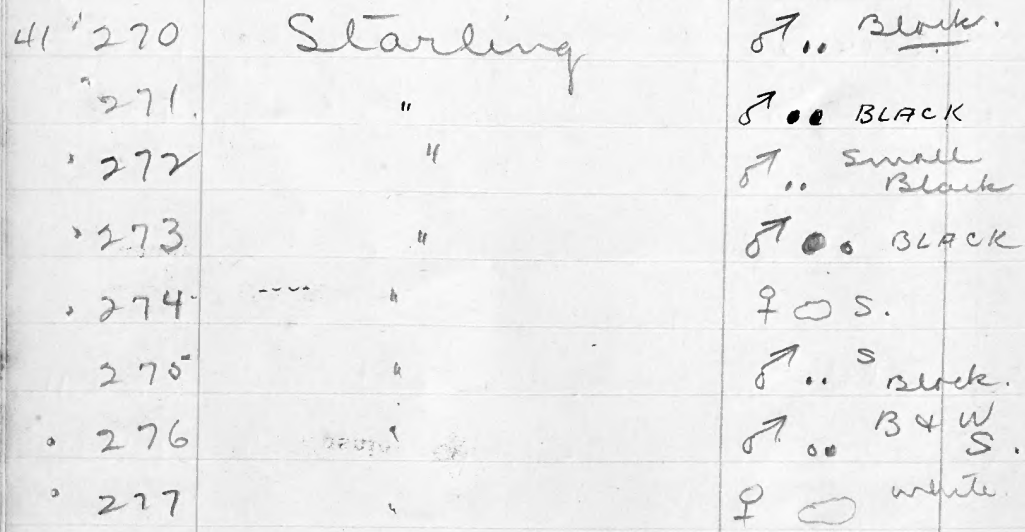 41 270 Starling ♂ .. Black.
271. " ♂ •• BLACK
272 " ♂ .. Small Black
273 " ♂ •• BLACK
274 " ♀ S.
275 " ♂ .. S Black.
276 " ♂ .. B & W S.
277 " ♀ white